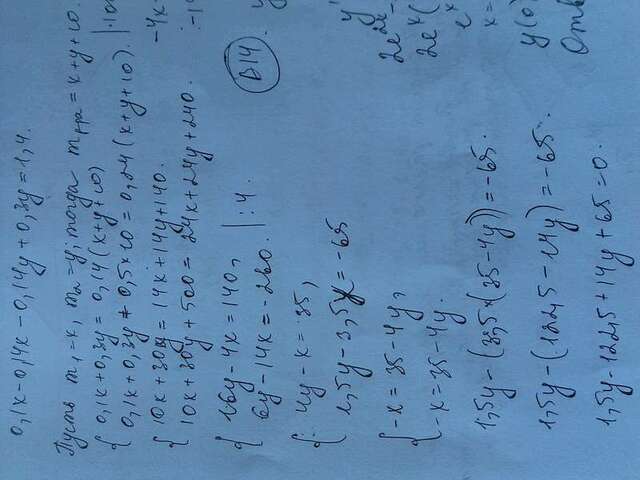 0,1x-0,14x-0,14y+0,3y=1,4.
Пусть m₁-x, m₂-y; тогда mр-ра=x+y+10.
{ 0,1x+0,3y=0,14(x+y+10)
0,1x+0,3y+0,5*10=0,24(x+y+10).
{ 10x+30y=14x+14y+140.
10x+30y+500=24x+24y+240.
{ 16y-4x=140, |:4.
6y-14x=-260.
B14.
{ 4y-x=35,
1,5y-3,5x=-65
{ -x=35-4y,
-x=35-4y.
1,5y-(3,5*(35-4y))=-65.
1,5y-(122,5-14y)=-65.
1,5y-122,5+14y+65=0.
y(0)
Отв